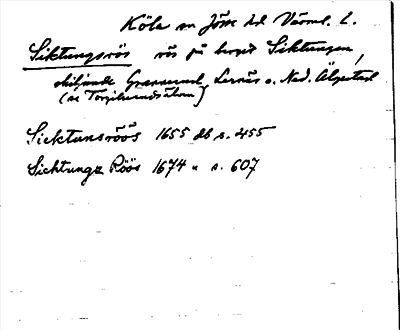 Köla sn Jösse hd Värml. l.
Siktungsrös rös på berget Siktungen,
skiljande Lernäs o. Ned. Älgstad
(se Torgilsrudsälven)
Sicktunsröös 1655 db s. 455
Sichtungz Röös 1674 " s. 607